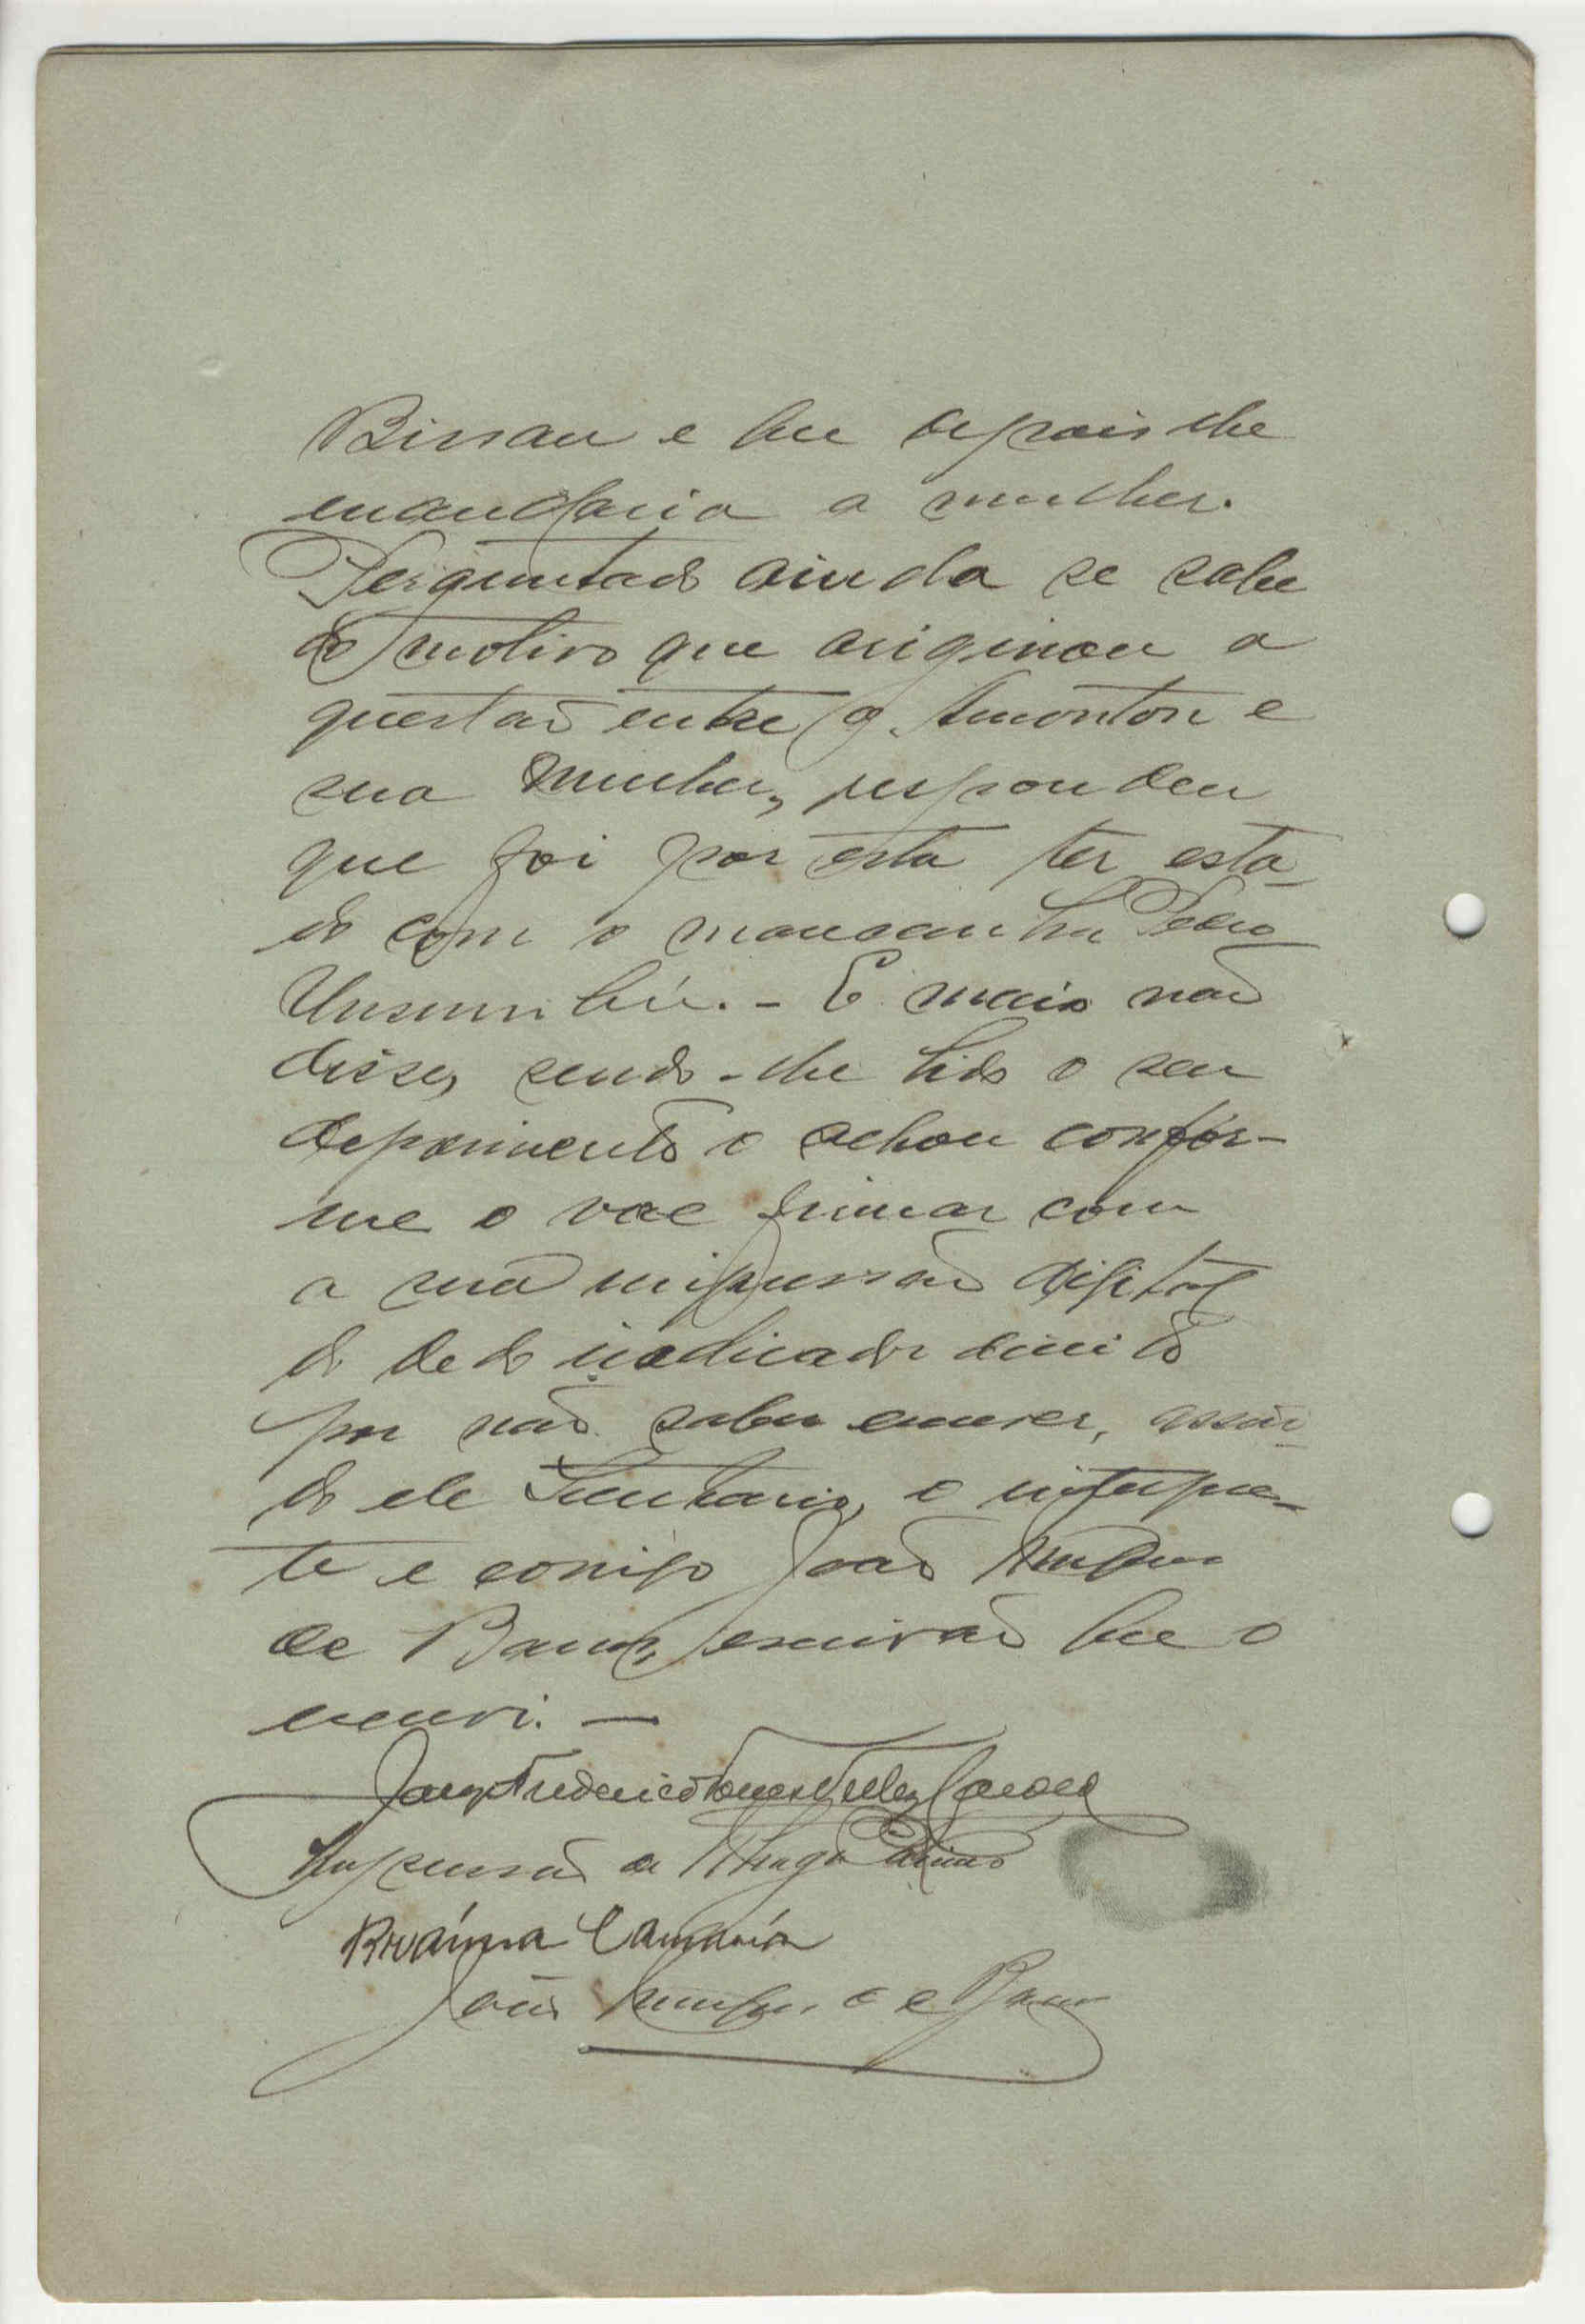 Bissau e que depois lhe
mandaria a mulher.
Perguntado ainda se sabe
do motivo que originou a
questão entre o Amonton e
sua mulher, respondeu
que foi por esta ter esta-
do com o mansoanca Pedro
E mais não
disse, sendo-lhe lido o seu
depoimento o achou confor-
me o vae firmar com
a sua impressão digital
do dedo indicador direito
por não saber escrever, assin
do ele Secretario, o interpre-
te e comigo João
de Barros, escrivão que o
escrevi. —
Frederico Telez
Impressão de
Camará
João de Barros